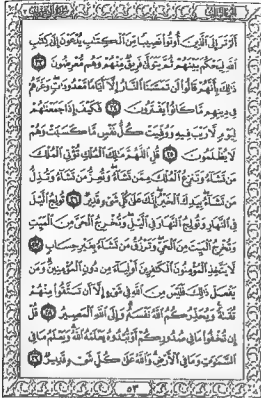 أَلَمْ تَرَ إِلَى الَّذِينَ أُوتُوا نَصِيبًا مِّنَ الْكِتَٰبِ يُدْعَوْنَ إِلَىٰ كِتَٰبِ
اللَّهِ لِيَحْكُمَ بَيْنَهُمْ ثُمَّ يَتَوَلَّىٰ فَرِيقٌ مِّنْهُمْ وَهُم مُّعْرِضُونَ ٢٣
ذَٰلِكَ بِأَنَّهُمْ قَالُوا لَن تَمَسَّنَا النَّارُ إِلَّا أَيَّامًا مَّعْدُودَٰتٍ وَغَرَّهُمْ
فِي دِينِهِم مَّا كَانُوا يَفْتَرُونَ ٢٤ فَكَيْفَ إِذَا جَمَعْنَٰهُمْ
لِيَوْمٍ لَّا رَيْبَ فِيهِ وَوُفِّيَتْ كُلُّ نَفْسٍ مَّا كَسَبَتْ وَهُمْ
لَا يُظْلَمُونَ ٢٥ قُلِ اللَّهُمَّ مَٰلِكَ الْمُلْكِ تُؤْتِي الْمُلْكَ
مَن تَشَاءُ وَتَنزِعُ الْمُلْكَ مِمَّن تَشَاءُ وَتُعِزُّ مَن تَشَاءُ وَتُذِلُّ
مَن تَشَاءُ بِيَدِكَ الْخَيْرُ إِنَّكَ عَلَىٰ كُلِّ شَيْءٍ قَدِيرٌ ٢٦ تُولِجُ الَّيْلَ
فِي النَّهَارِ وَتُولِجُ النَّهَارَ فِي الَّيْلِ وَتُخْرِجُ الْحَيَّ مِنَ الْمَيِّتِ
وَتُخْرِجُ الْمَيِّتَ مِنَ الْحَيِّ وَتَرْزُقُ مَن تَشَاءُ بِغَيْرِ حِسَابٍ ٢٧
لَّا يَتَّخِذِ الْمُؤْمِنُونَ الْكَٰفِرِينَ أَوْلِيَاءَ مِن دُونِ الْمُؤْمِنِينَ وَمَن
يَفْعَلْ ذَٰلِكَ فَلَيْسَ مِنَ اللَّهِ فِي شَيْءٍ إِلَّا أَن تَتَّقُوا مِنْهُمْ
تُقَىٰةً وَيُحَذِّرُكُمُ اللَّهُ نَفْسَهُ وَإِلَى اللَّهِ الْمَصِيرُ ٢٨ قُلْ
إِن تُخْفُوا مَا فِي صُدُورِكُمْ أَوْ تُبْدُوهُ يَعْلَمْهُ اللَّهُ وَيَعْلَمُ مَا فِي
السَّمَٰوَٰتِ وَمَا فِي الْأَرْضِ وَاللَّهُ عَلَىٰ كُلِّ شَيْءٍ قَدِيرٌ ٢٩
٥٣